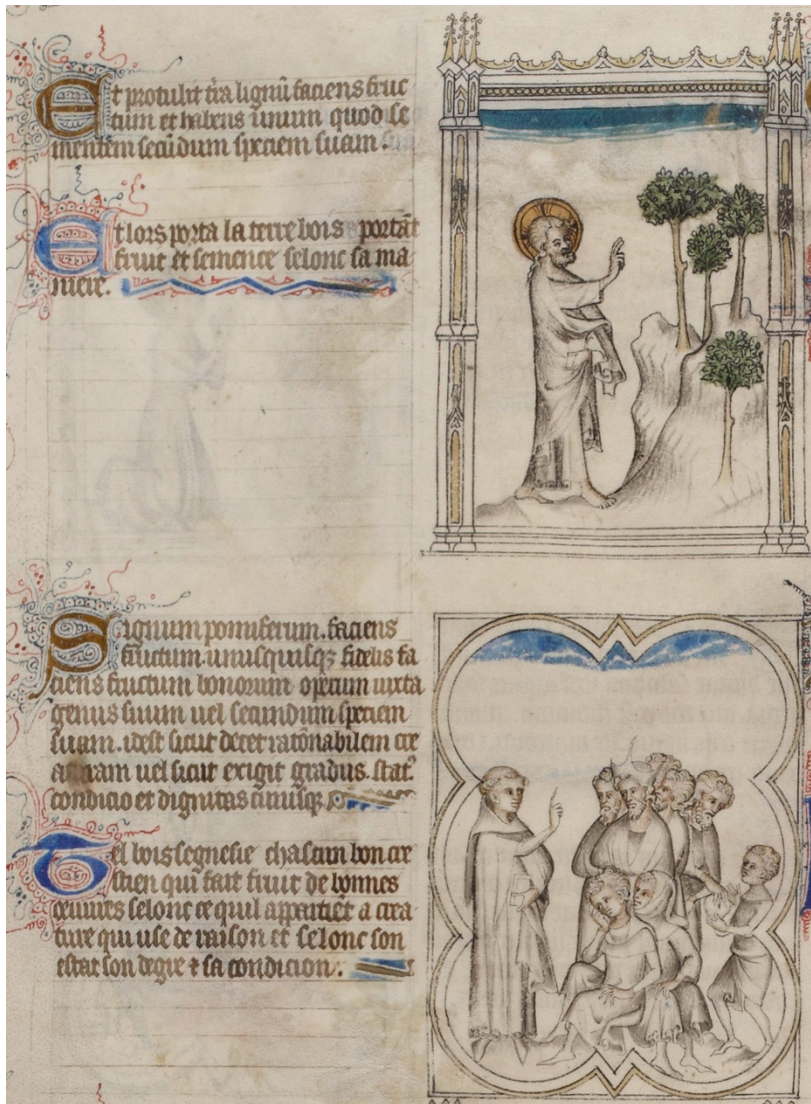 Et protulit t̃ra lignũ faciens fruc
tum et habens unum quod se
mentem secũdum speciem suam.
Et lors porta la terre bois portãt
fruit et semence selonc sa ma
niere.
Lignum pomiferum. faciens
fructum. unusquisqꝫ fidelis fa
ciens fructum bonorum operum iuxta
genus suum uel secundum speciem
suam. idest sicut decet rationabilem cre
aturam uel sicut exigit gradus. stat᷒
condicio et dignitas cuiusqꝫ
Tel bois segnefie chascun bon cre
stien qui fait fruit de bonnes
œuures selonc ce quil appartiẽt a crea
ture qui use de raison et selonc son
estat son degre ⁊ sa condicion.